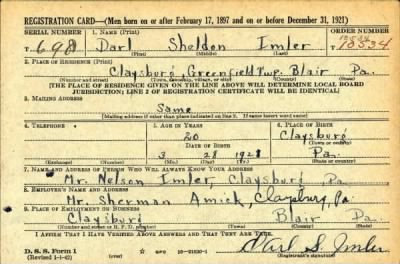 REGISTRATION CARD—(Men born on or after February 17, 1897 and on or before December 31, 1921)
SERIAL NUMBER 1. NAME (Print) ORDER NUMBER
T-698 Darl Sheldon Imler 10534
(First) (Middle) (Last)
2. PLACE OF RESIDENCE (Print)
Claysburg, Greenfield Twp. Blair Pa.
(Number and street) (Town, township, village, or city) (County) (State)
[THE PLACE OF RESIDENCE GIVEN ON THE LINE ABOVE WILL DETERMINE LOCAL BOARD
JURISDICTION; LINE 2 OF REGISTRATION CERTIFICATE WILL BE IDENTICAL]
3. MAILING ADDRESS
Same
[Mailing address if other than place indicated on line 2. If same insert word same]
4. TELEPHONE 5. AGE IN YEARS 6. PLACE OF BIRTH
20 Claysburg
DATE OF BIRTH (Town or county)
3 28 Pa.
(Exchange) (Number) (Mo.) (Day) (Yr.) (State or country)
7. NAME AND ADDRESS OF PERSON WHO WILL ALWAYS KNOW YOUR ADDRESS
Mr. Nelson Imler, Claysburg Pa.
8. EMPLOYER'S NAME AND ADDRESS
Mr. Sherman Amick, Claysburg, Pa.
9. PLACE OF EMPLOYMENT OR BUSINESS
Claysburg Blair Pa.
(Number and street or R. F. D. number) (Town) (County) (State)
I AFFIRM THAT I HAVE VERIFIED ABOVE ANSWERS AND THAT THEY ARE TRUE.
D. S. S. Form 1
(Revised 1-1-42) GPO 16—21630-1 Darl S. Imler
(Registrant's signature)